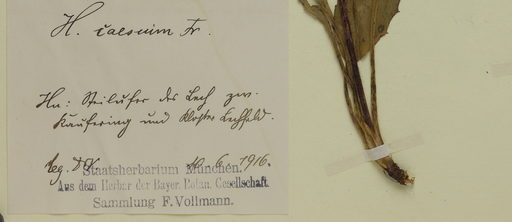 H. caesium Fr.
Hu: Steilufer des Lech zw.
Kaufering und Kloster Lechfeld.
leg. Dr V. 10. 6. 1916.
Staatsherbarium München.
Aus dem Herbar der Bayer. Botan. Gesellschaft.
Sammlung F. Vollmann.